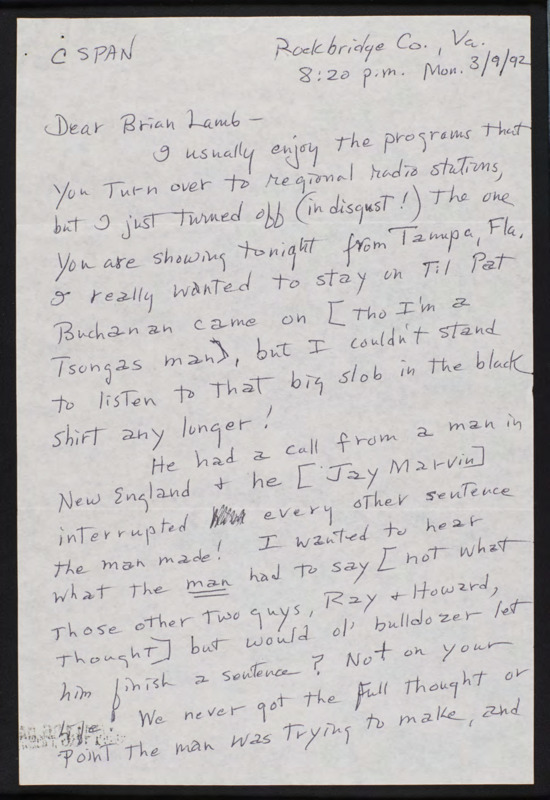 C SPAN
Rockbridge Co., Va.
8:20 p.m. Mon. 3/9/92
Dear Brian Lamb –
I usually enjoy the programs that
you turn over to regional radio stations,
but I just turned off (in disgust!) the one
you are showing tonight from Tampa, Fla.
I really wanted to stay on til Pat
Buchanan came on [tho I'm a
Tsongas man], but I couldn't stand
to listen to that big slob in the black
shirt any longer!
He had a call from a man in
New England & he [Jay Marvin]
interrupted every other sentence
the man made! I wanted to hear
what the man had to say [not what
those other two guys, Ray & Howard,
thought] but would ol' bulldozer let
him finish a sentence? Not on your
life
We never got the full thought or
point the man was trying to make, and